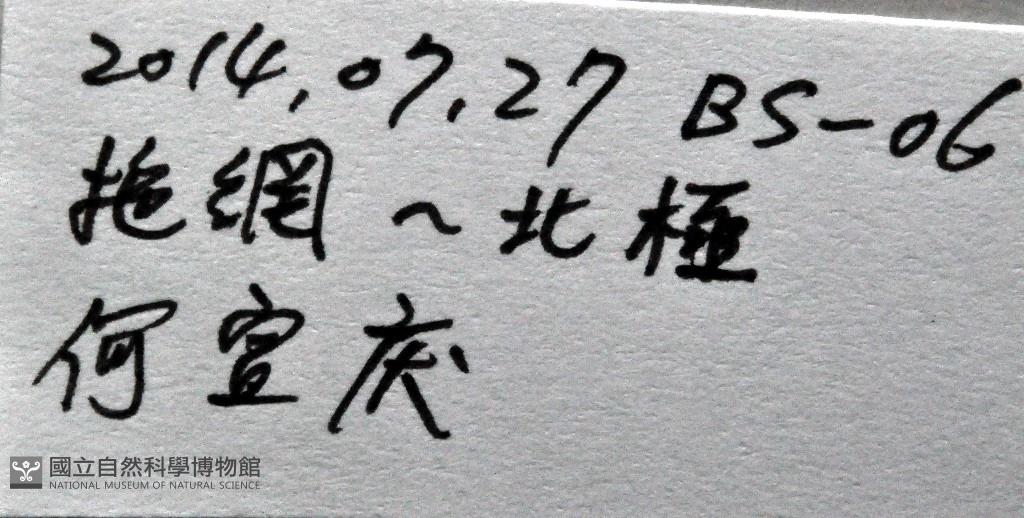 2014.07.27 BS-06
拖網~北極
何宣庆
國立自然科學博物館
NATIONAL MUSEUM OF NATURAL SCIENCE